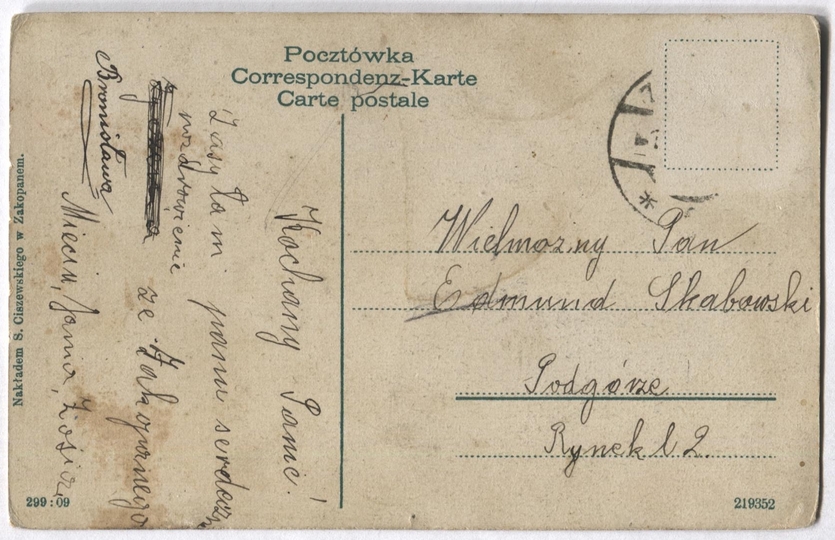 Pocztówka
Correspondenz-Karte
Carte postale
Wielmożny Pan
Edmund Skabowski
Podgórze
Rynek l 2.
Kochany Panie!
Zasyłam panu serdeczn
pozdrowienie
ze Zakopanego
Mieciu, Jania, Zosia
Bronisława
Nakładem S. Ciszewskiego w Zakopanem.
299:09
219352